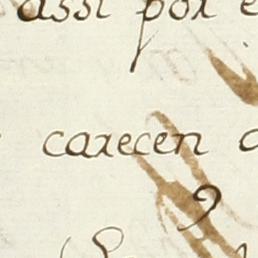 assi por
carecen